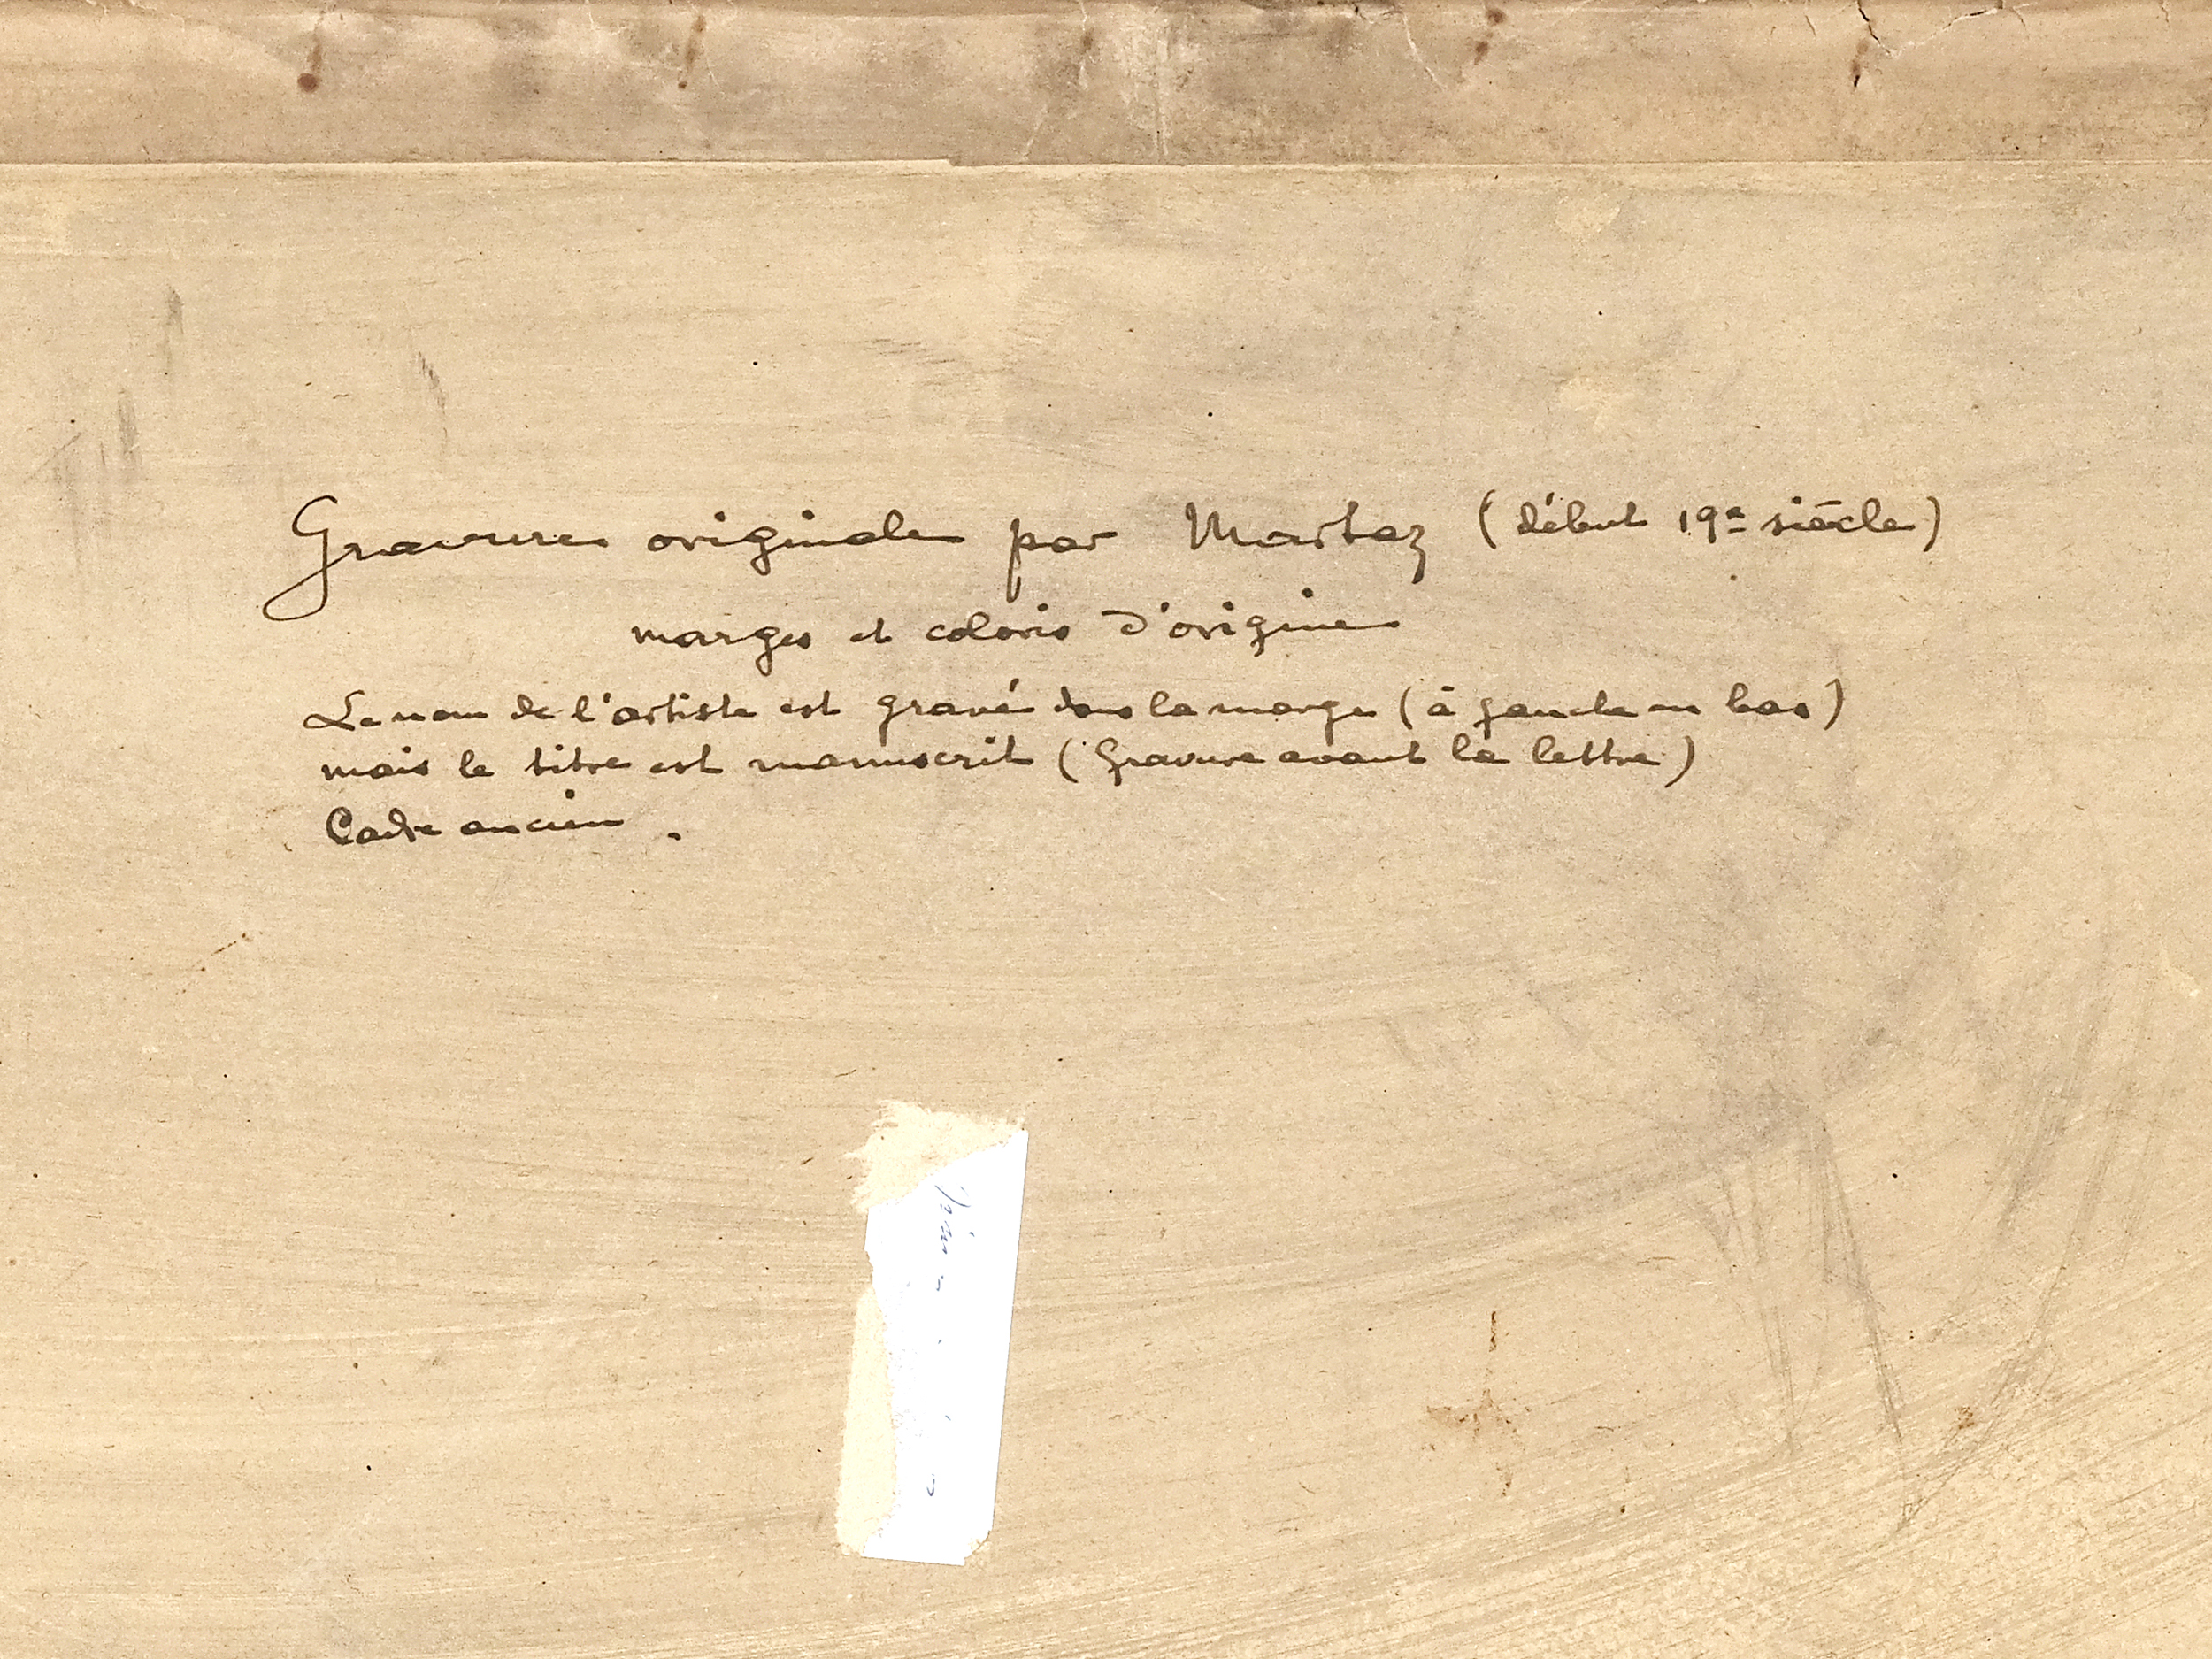 Gravure originale par Martaz (début 19e siècle)
marges et coloris d'origine
Le nom de l'artiste est gravé dans la marge (à gauche en bas)
mais le titre est manuscrit (Gravure avant la lettre)
Cadre ancien.